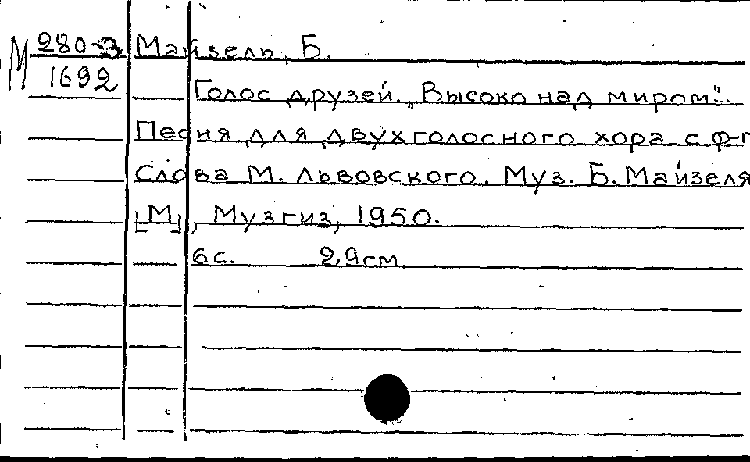 М 280-3 Майзель, Б.
1692
Голос друзей. „Высоко над миром".
Песня для двухголосного хора с ф-п
Слова М. Львовского. Муз. Б. Майзеля
[М], Музгиз, 1950.
6с. 29см